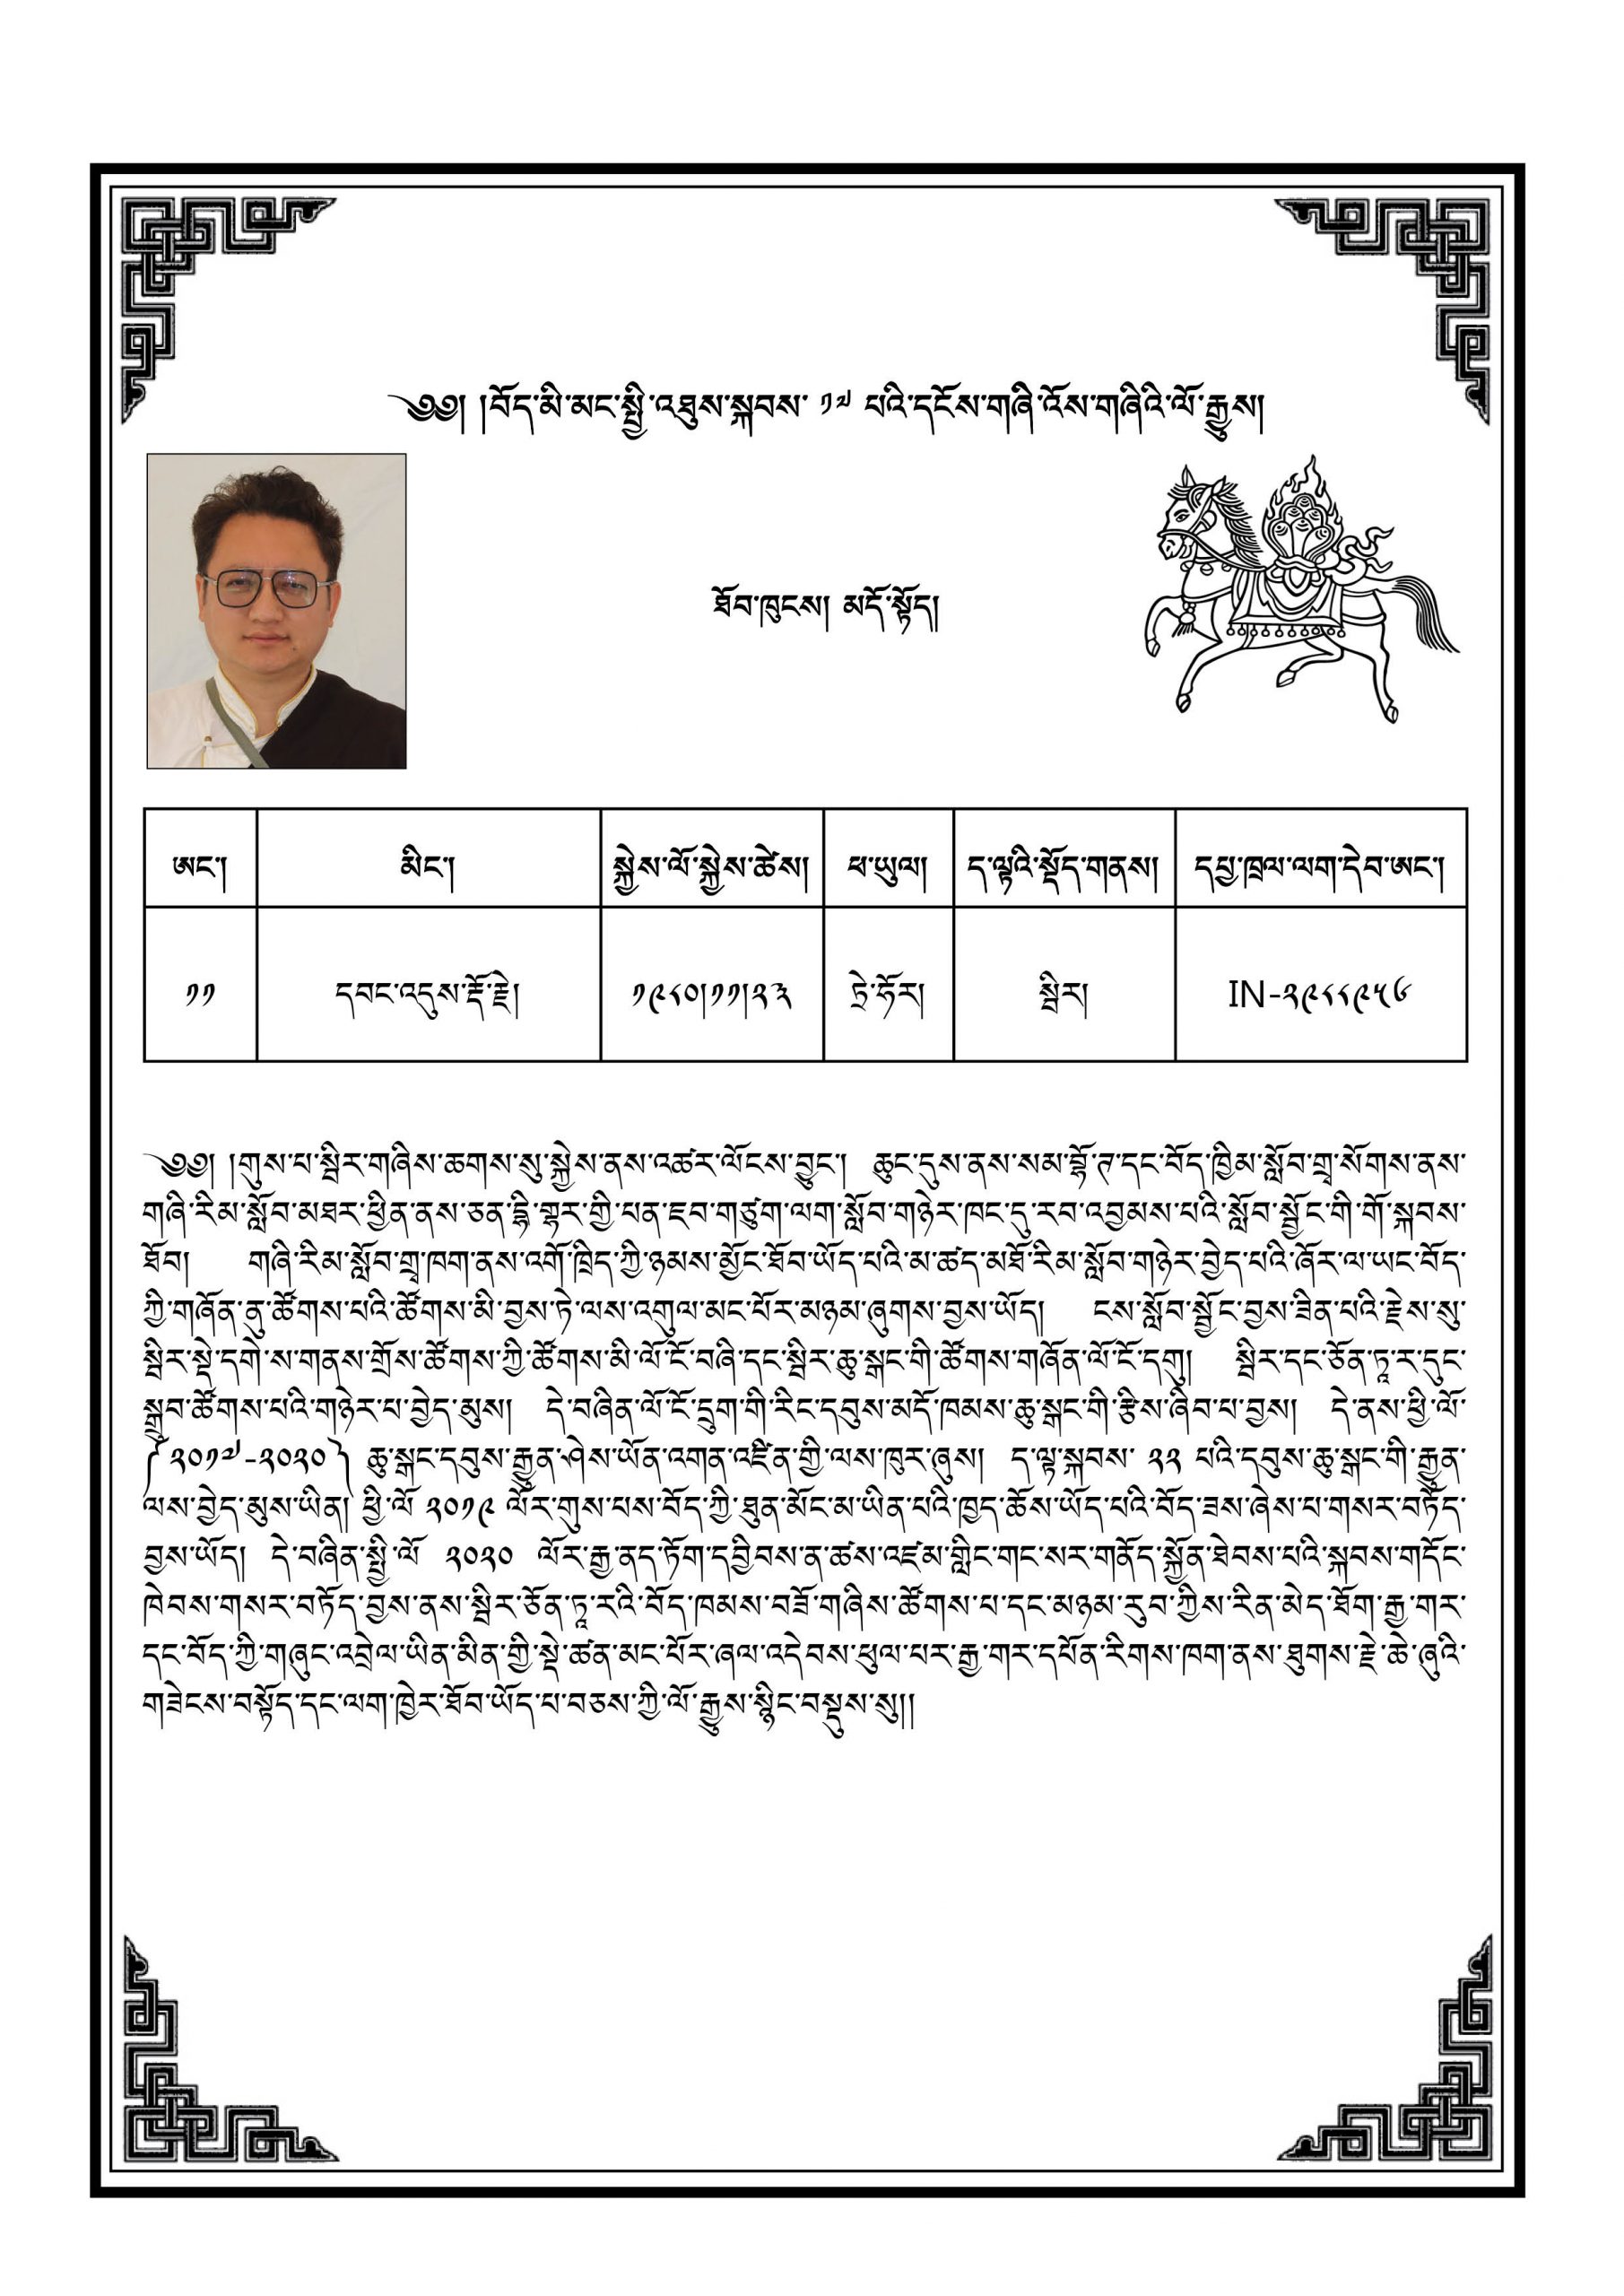 ༄༅། །བོད་མི་མང་སྤྱི་འཐུས་སྐབས་ ༡༧ པའི་དངོས་གཞི་འོས་གཞིའི་ལོ་རྒྱུས།
ཐོབ་ཁུངས། མདོ་སྟོད།
ཨང་། མིང་། སྐྱེས་ལོ་སྐྱེས་ཚེས། ཕ་ཡུལ། ད་ལྟའི་སྡོད་གནས། དཔྱ་ཁྲལ་ལག་དེབ་ཨང་།
༡༡ དབང་འདུས་རྡོ་རྗེ། ༡༩༨༠།༡༡།༢༣ ཏྲེ་ཧོར། སྦིར། IN-༢༩༨༨༩༥༦
༄༅། །གུས་པ་སྦིར་གཞིས་ཆགས་སུ་སྐྱེས་ནས་འཚར་ལོངས་བྱུང་། ཆུང་དུས་ནས་སམ་བྷོ་ཊ་དང་བོད་ཁྱིམ་སློབ་གྲྭ་སོགས་ནས་
གཞི་རིམ་སློབ་མཐར་ཕྱིན་ནས་ཅན་ཌི་གྷར་གྱི་པན་ཇབ་གཙུག་ལག་སློབ་གཉེར་ཁང་དུ་རབ་འབྱམས་པའི་སློབ་སྦྱོང་གི་གོ་སྐབས་
ཐོབ། གཞི་རིམ་སློབ་གྲྭ་ཁག་ནས་འགོ་ཁྲིད་ཀྱི་ཉམས་མྱོང་ཐོབ་ཡོད་པའི་མ་ཚད་མཐོ་རིམ་སློབ་གཉེར་བྱེད་པའི་ཞོར་ལ་ཡང་བོད་
ཀྱི་གཞོན་ནུ་ཚོགས་པའི་ཚོགས་མི་བྱས་ཏེ་ལས་འགུལ་མང་པོར་མཉམ་ཞུགས་བྱས་ཡོད། ངས་སློབ་སྦྱོང་བྱས་ཟིན་པའི་རྗེས་སུ་
སྦིར་སྡེ་དགེ་ས་གནས་གྲོས་ཚོགས་ཀྱི་ཚོགས་མི་ལོ་ངོ་བཞི་དང་སྦིར་ཆུ་སྒང་གི་ཚོགས་གཞོན་ལོ་ངོ་དགུ། སྦིར་དང་ཅོན་ཏཱ་ར་དུང་
སྒྲུབ་ཚོགས་པའི་གཉེར་པ་བྱེད་མུས། དེ་བཞིན་ལོ་ངོ་དྲུག་གི་རིང་དབུས་མདོ་ཁམས་ཆུ་སྒང་གི་རྩིས་ཞིབ་པ་བྱས། དེ་ནས་ཕྱི་ལོ་
༼༢༠༡༧-༢༠༢༠༽ ཆུ་སྒང་དབུས་རྒྱུན་ཤེས་ཡོན་འགན་འཛིན་གྱི་ལས་ཁུར་ཞུས། ད་ལྟ་སྐབས་ ༢༢ པའི་དབུས་ཆུ་སྒང་གི་རྒྱུན་
ལས་བྱེད་མུས་ཡིན། ཕྱི་ལོ ༢༠༡༩ ལོར་གུས་པས་བོད་ཀྱི་ཐུན་མོང་མ་ཡིན་པའི་ཁྱད་ཆོས་ཡོད་པའི་བོད་ཟས་ཞེས་པ་གསར་བཏོད་
བྱས་ཡོད། དེ་བཞིན་སྤྱི་ལོ ༢༠༢༠ ལོར་རྒྱ་ནད་ཏོག་དབྱིབས་ན་ཚས་འཛམ་གླིང་གང་སར་གནོད་སྐྱོན་ཐེབས་པའི་སྐབས་གདོང་
ཁེབས་གསར་བཏོད་བྱས་ནས་སྦིར་ཅོན་ཏཱ་རའི་བོད་ཁམས་བཟོ་གཞིས་ཚོགས་པ་དང་མཉམ་རུབ་ཀྱིས་རིན་མེད་ཐོག་རྒྱ་གར་
དང་བོད་ཀྱི་གཞུང་འབྲེལ་ཡིན་མིན་གྱི་སྡེ་ཚན་མང་པོར་ཞལ་འདེབས་ཕུལ་པར་རྒྱ་གར་དཔོན་རིགས་ཁག་ནས་ཐུགས་རྗེ་ཆེ་ཞུའི་
གཟེངས་བསྟོད་དང་ལག་ཁྱེར་ཐོབ་ཡོད་པ་བཅས་ཀྱི་ལོ་རྒྱུས་སྙིང་བསྡུས་སུ།།